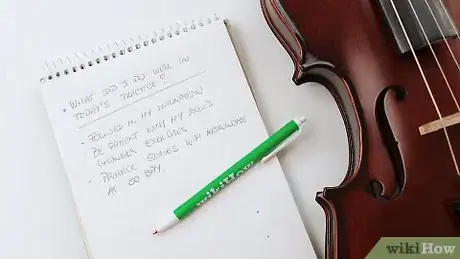 • WHAT DID I DO WELL IN
TODAY'S PRACTICE?
- FOCUSED IN MY INTONATION
BE PATIENT WITH MY BOW'S
CHANGES EXERCISES
- PRACTICE SCALES WITH METRONOME
AT 50 BPM.
wikiHow
wikiHow